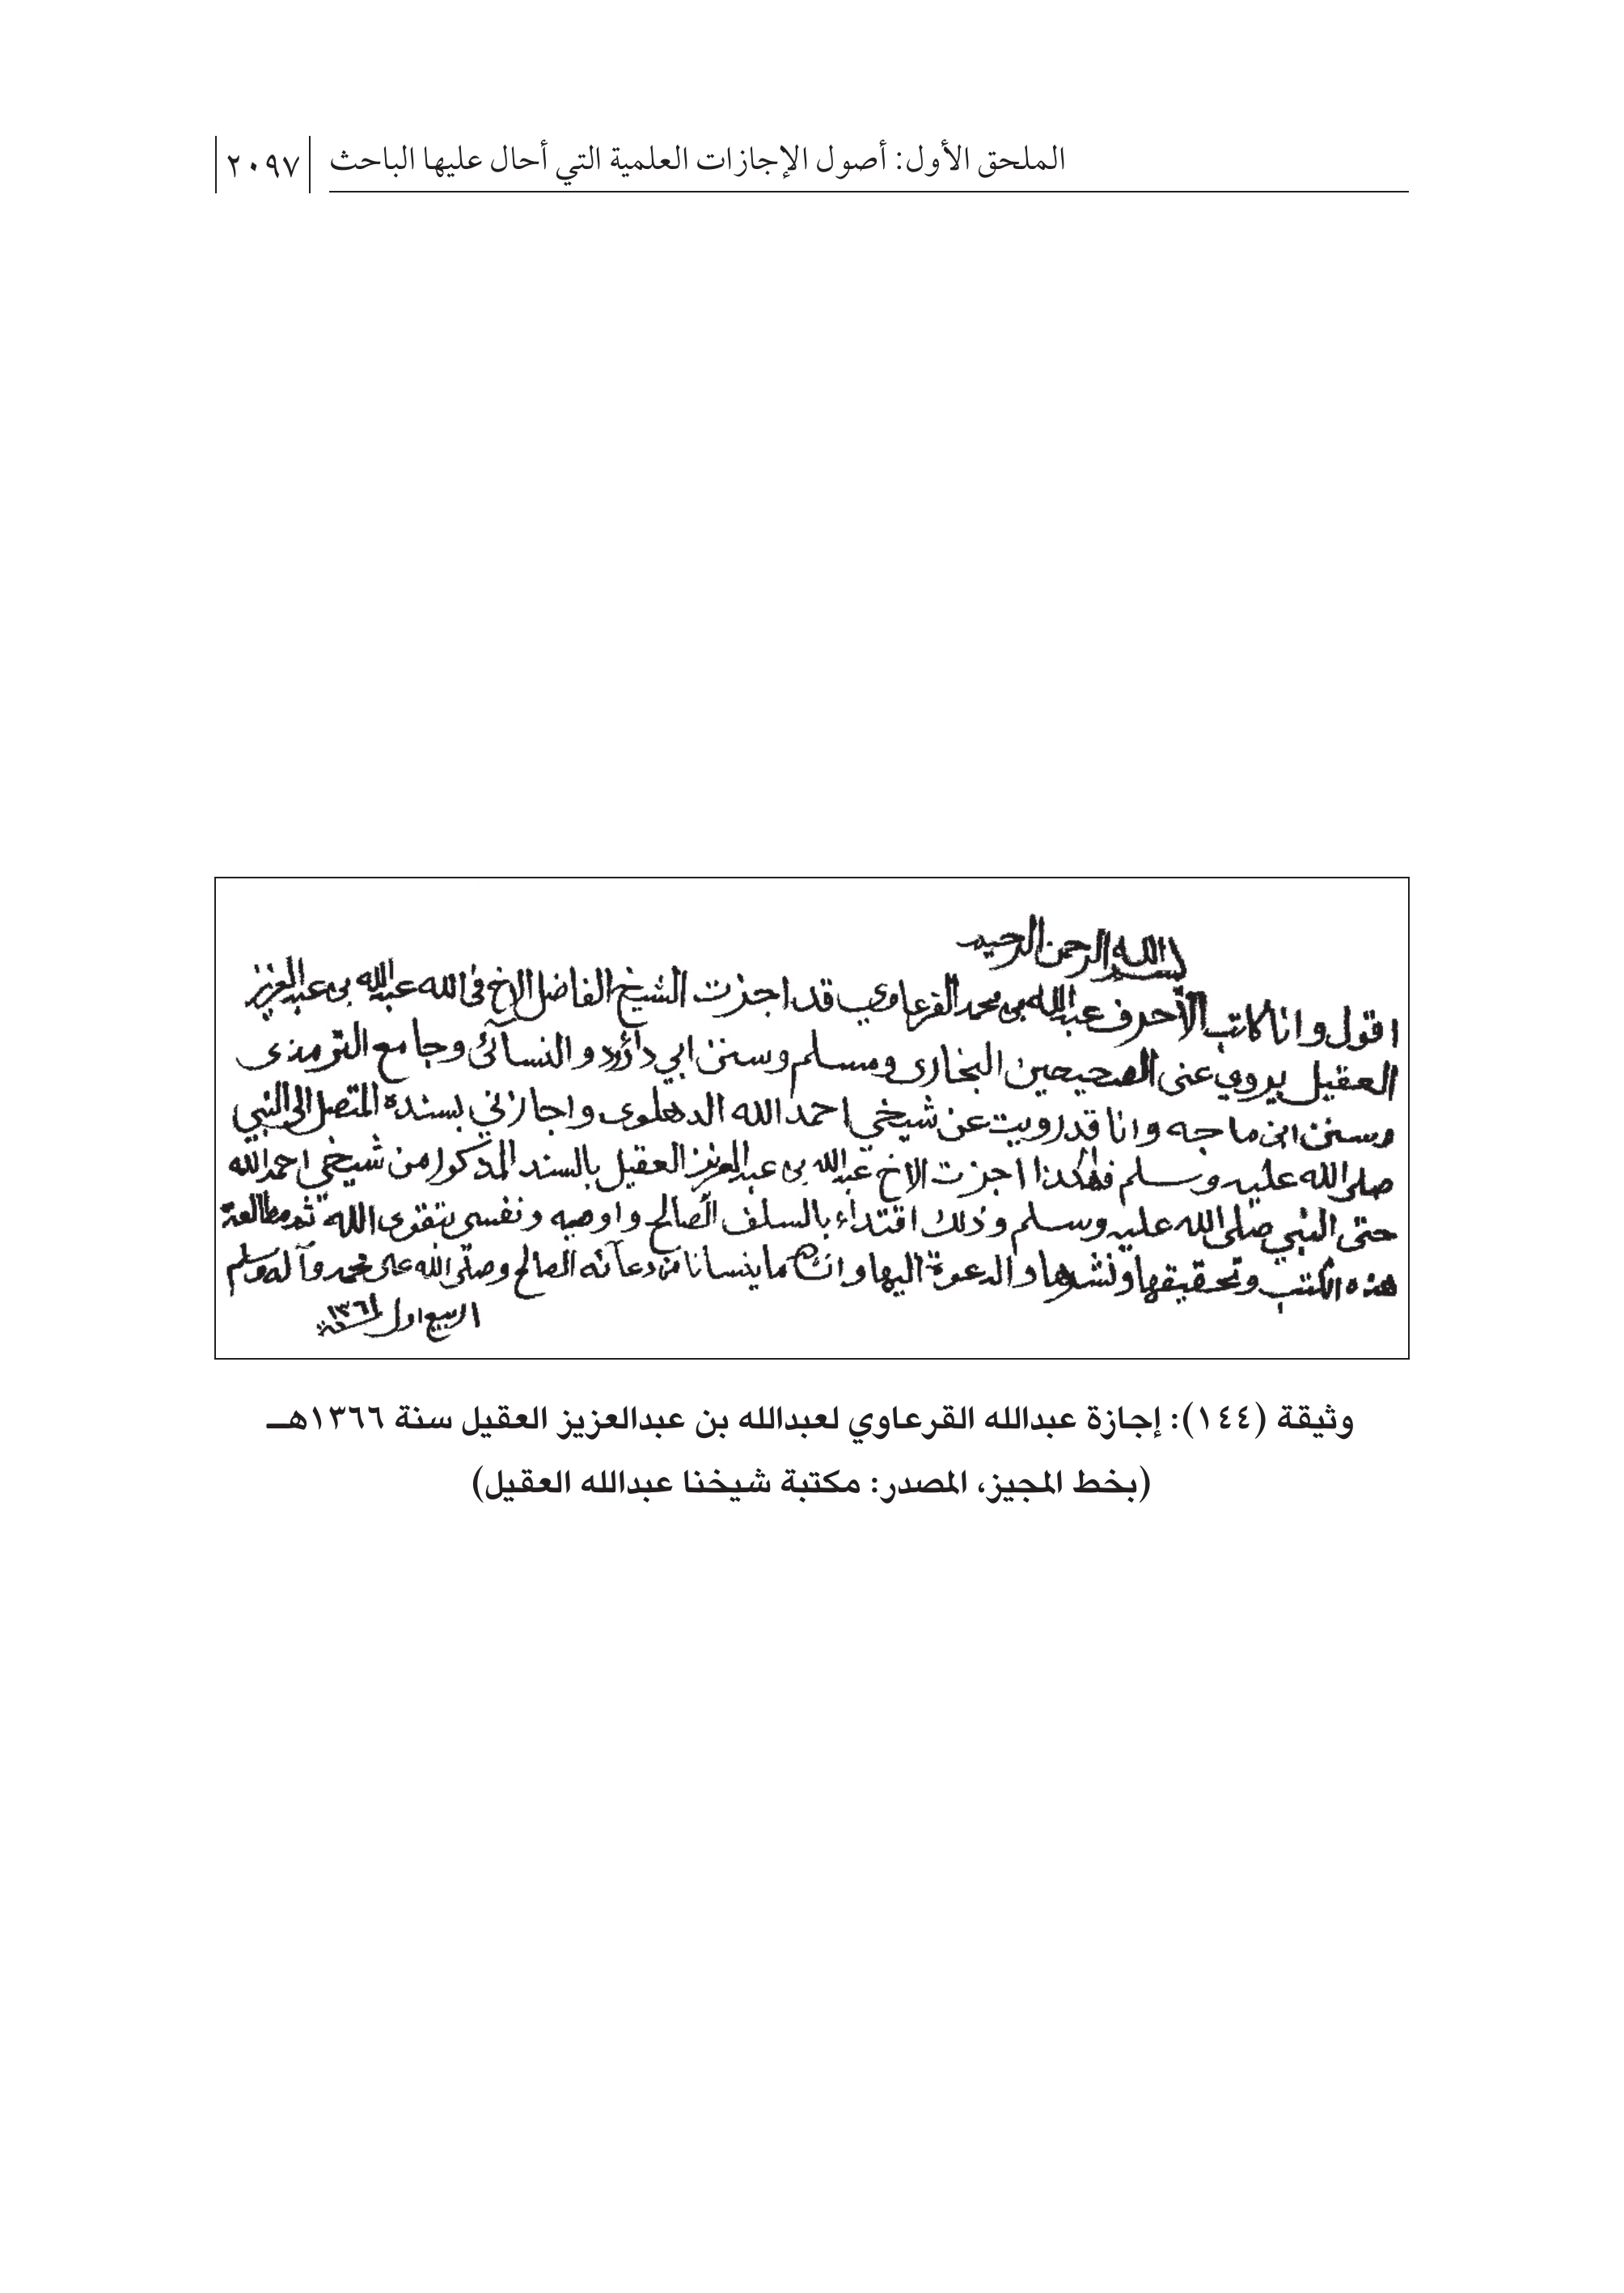 الملحق الأول: أصول الإجازات العلمية التي أحال عليها الباحث ٢٠٩٧
بسم الله الرحمن الرحيم
اقول وانا كاتب الأحرف عبدالله بن محمد القرعاوي قد اجزت الشيخ الفاضل الاخ فى الله عبدالله بن عبدالعزيز
العقيل يروي عنى الصحيحين البخارى ومسلم وسنن ابي داؤد والنسائى وجامع الترمذى
وسنن ابن ماجه وانا قد رويت عن شيخي احمد الله الدهلوى واجازني بسنده المتصل الى النبي
صلى الله عليه وسلم فهكذا اجزت الاخ عبدالله بن عبدالعزيز العقيل بالسند المذكور من شيخي احمد الله
حتى النبي صلى الله عليه وسلم وذلك اقتداء بالسلف الصالح واوصيه ونفسى بتقوى الله ثم مطالعة
هذه الكتب وتحقيقها ونشرها والدعوة اليها وان ما ينسانا من دعائه الصالح وصلى الله على محمد وآله وسلم
ا ربيع اول سنة ١٣٦٦
وثيقة (١٤٤): إجازة عبدالله القرعاوي لعبدالله بن عبدالعزيز العقيل سنة ١٣٦٦هـ
(بخط المجيز، المصدر: مكتبة شيخنا عبدالله العقيل)